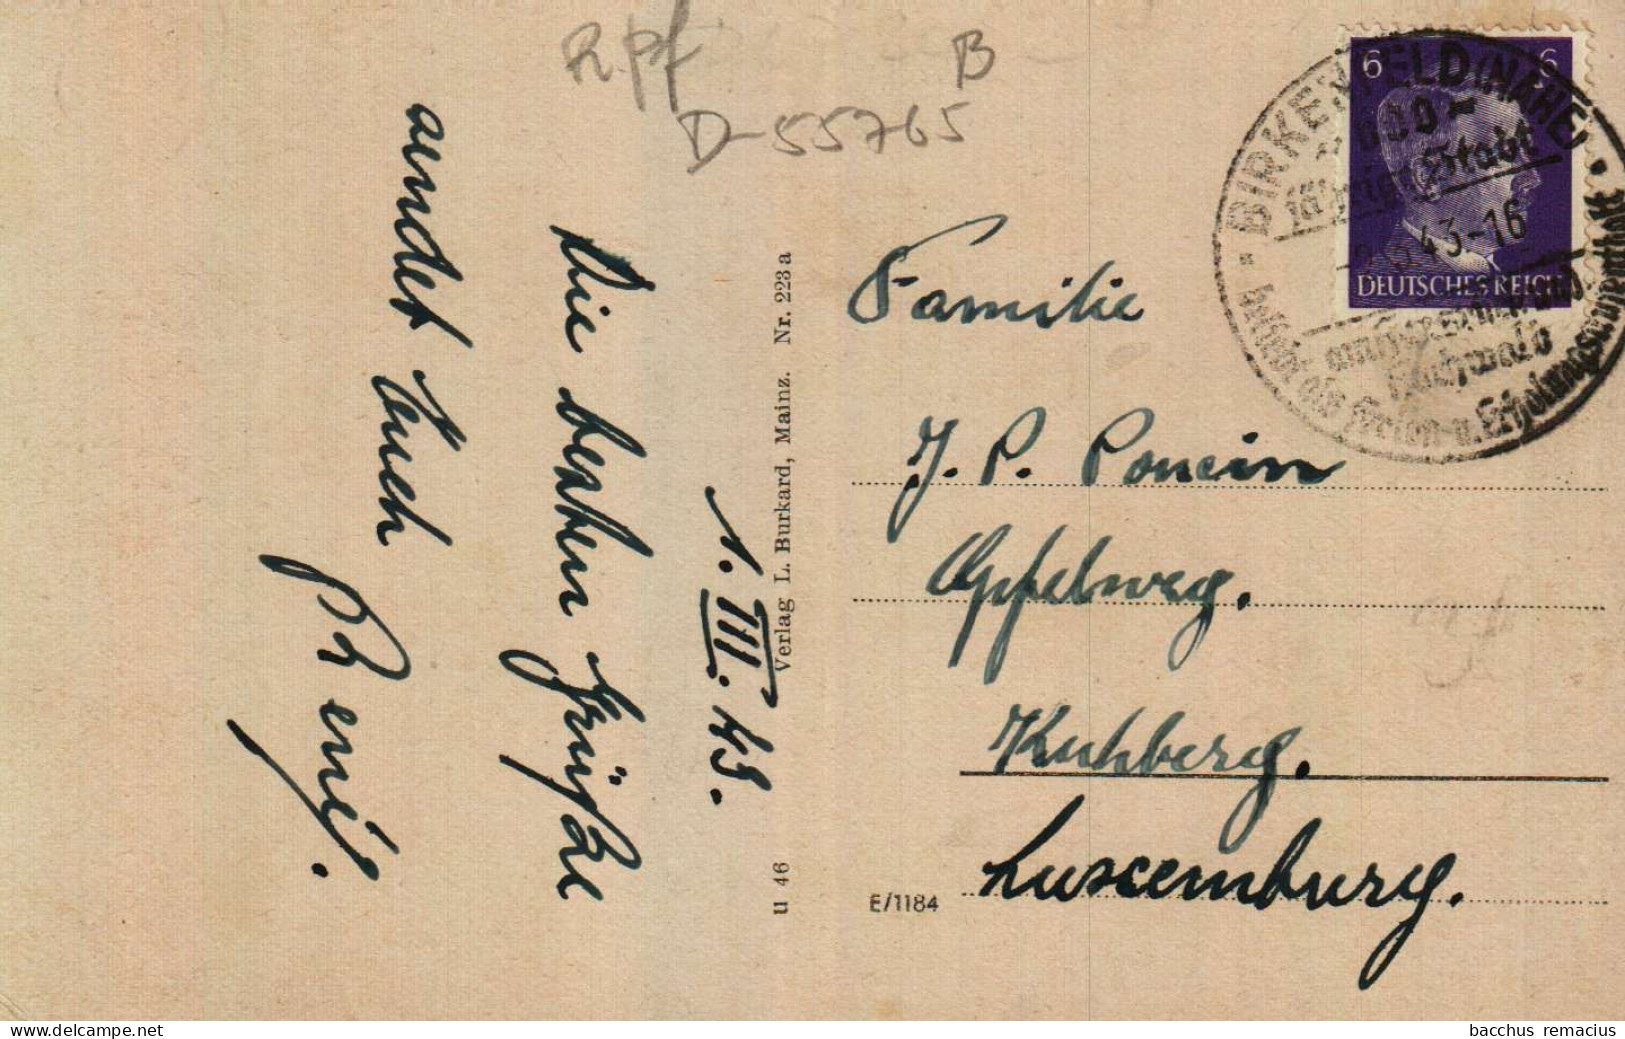 R.pf B
D-55765
6 6
DEUTSCHES REICH
BIRKENFELD (NAHE)
43-16
Hochwald
beliebt als Ferien- u. Erholungsaufenthalt
1. III. 43.
Die besten Grüße
sendet Euch
Verlag L. Burkard, Mainz. Nr. 223 a
u 46
Familie
J. P. Poncin
Apfelweg.
Kuhberg.
Luxemburg.
E/1184
bacchus remacius
www.delcampe.net